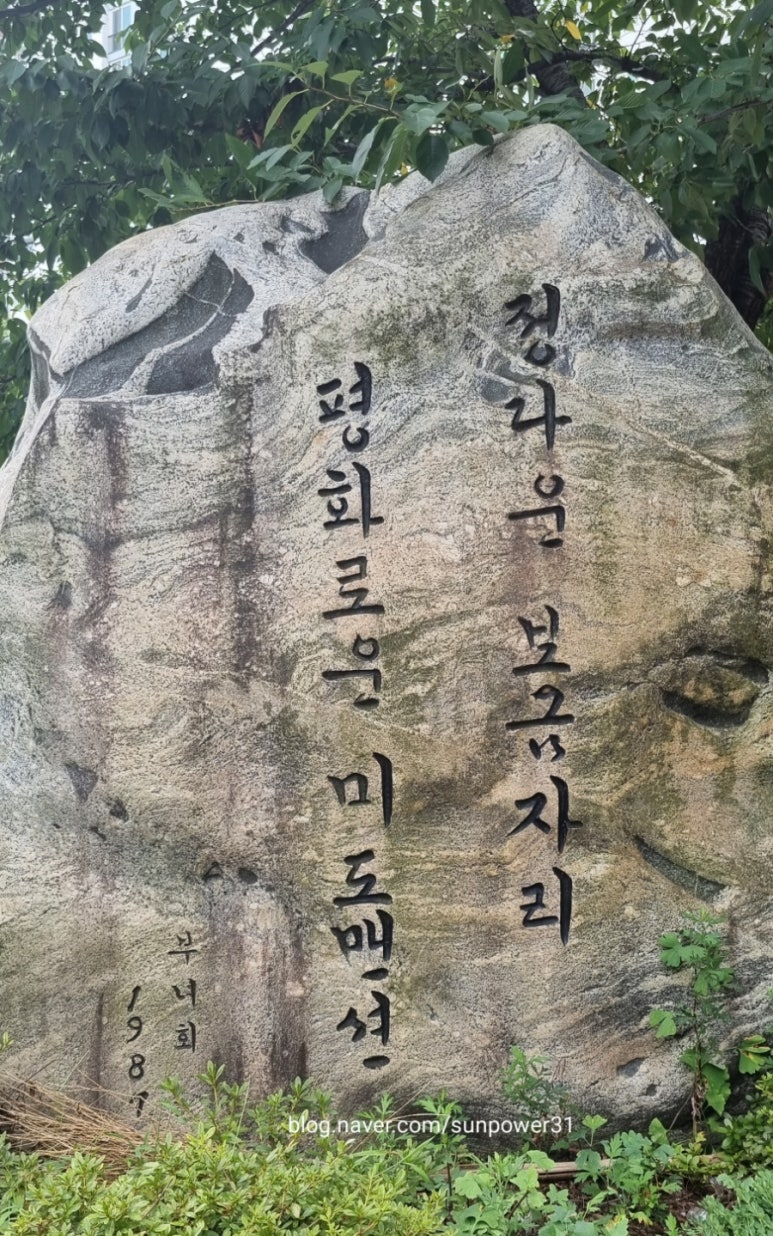 정라운 보금자리
평화로운 미도맨션
부녀회
1987
blog.naver.com/sunpower31